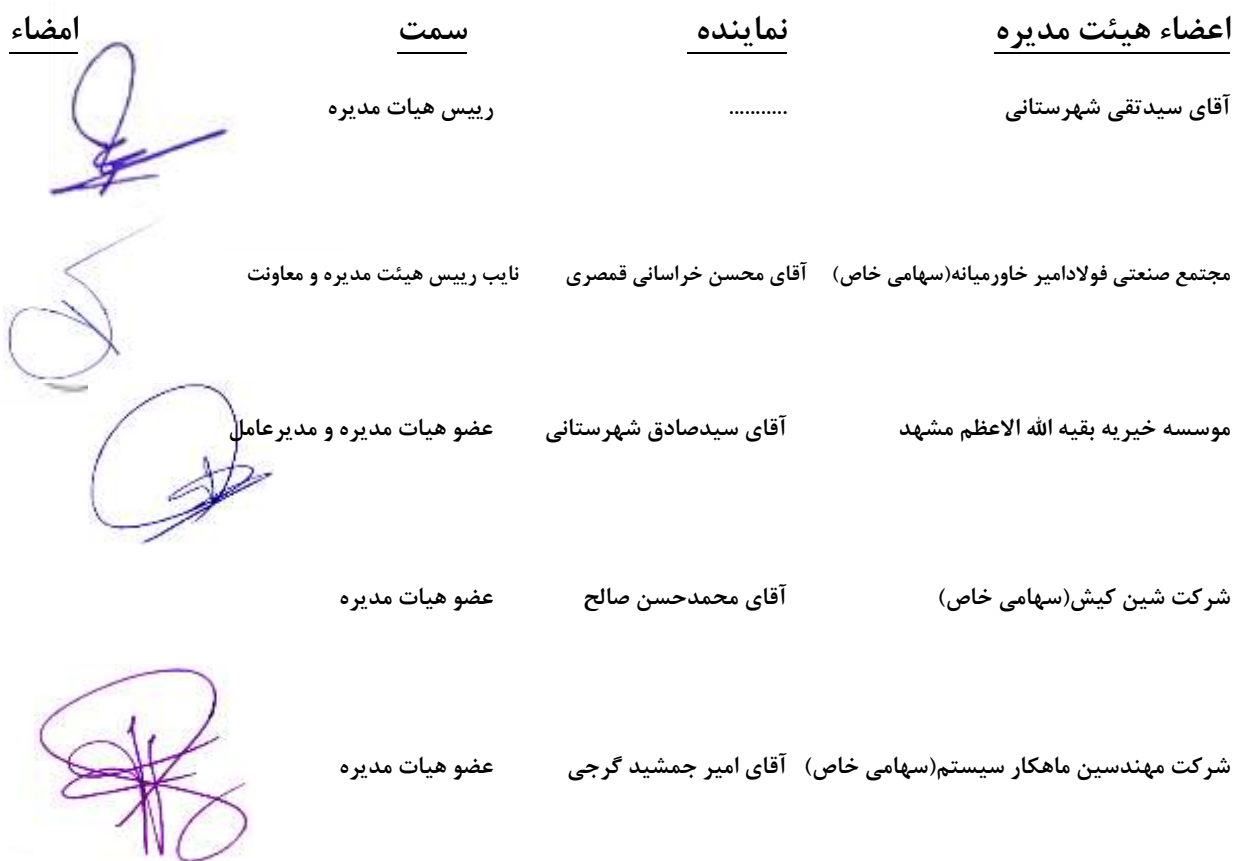 اعضاء هیئت مدیره نماینده سمت امضاء
آقای سیدتقی شهرستانی ........... رییس هیات مدیره
مجتمع صنعتی فولادامیر خاورمیانه(سهامی خاص) آقای محسن خراسانی قمصری نایب رییس هیئت مدیره و معاونت
موسسه خیریه بقیه الله الاعظم مشهد آقای سیدصادق شهرستانی عضو هیات مدیره و مدیرعامل
شرکت شین کیش(سهامی خاص) آقای محمدحسن صالح عضو هیات مدیره
شرکت مهندسین ماهکار سیستم(سهامی خاص) آقای امیر جمشید گرجی عضو هیات مدیره